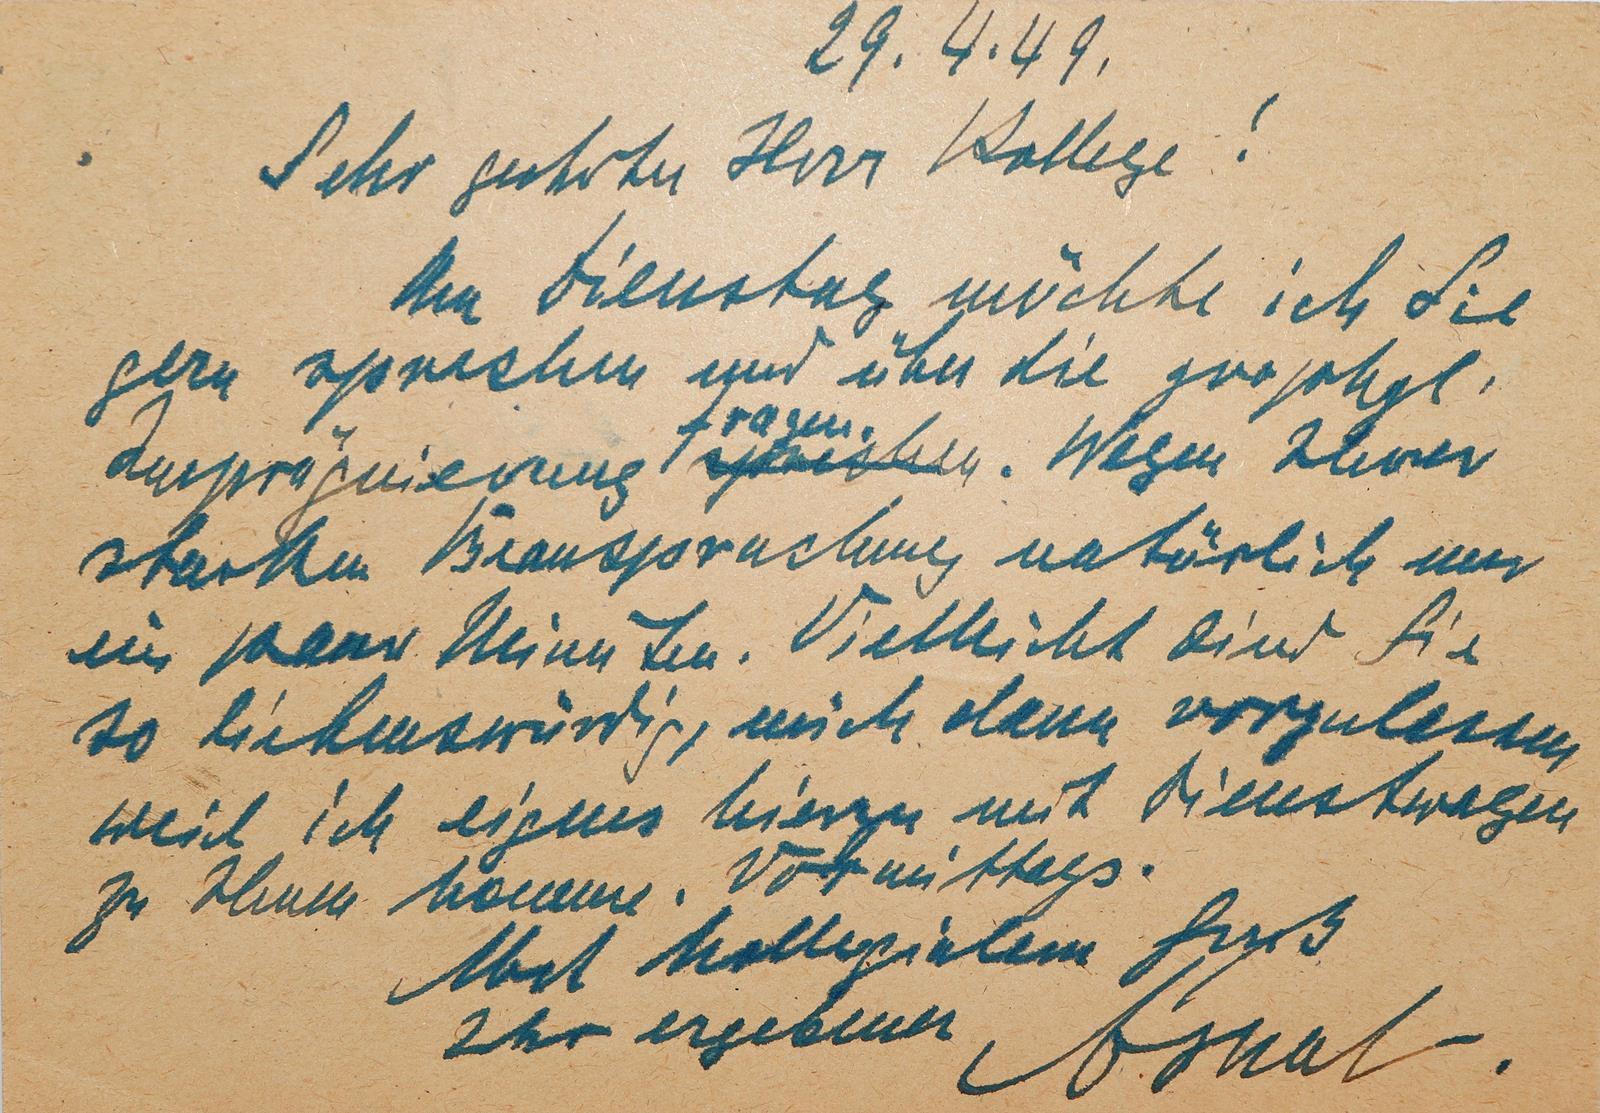 29. 4. 49.
Sehr geehrter Herr Kollege!
Am Dienstag möchte ich Sie
gern sprechen und über die
Imprägnierung sprechen. fragen. Wegen Ihrer
starken Beanspruchung natürlich nur
ein paar Minuten. Vielleicht sind Sie
so liebenswürdig, mich dann vorzulassen
weil ich eigens hierzu mit Dienstwagen
zu Ihnen komme. Vormittags.
Mit kollegialem Gruß
Ihr ergebener